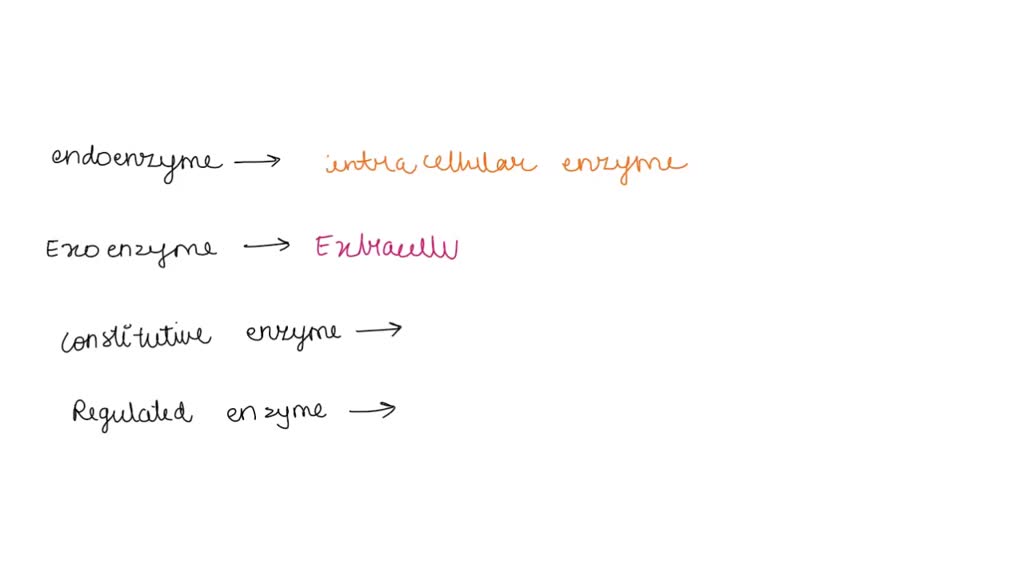 endoenzyme → intracellular enzyme
Exoenzyme → Extracellu
constitutive enzyme →
Regulated enzyme →